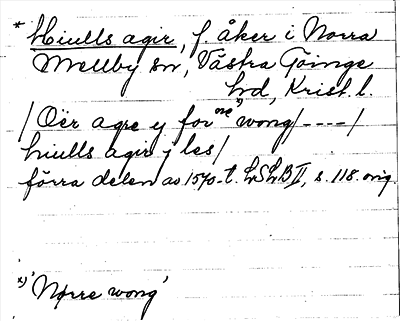 * Hiulls agir, f. åker i Norra
Mellby sn, Västra Göinge
hd, Krist. l.
/Oër agre y for ne x) wong/----/
hiulls agir j les/
förra delen av 1570-t. LSLB II, s. 118. orig.
x) 'Nørre wong'